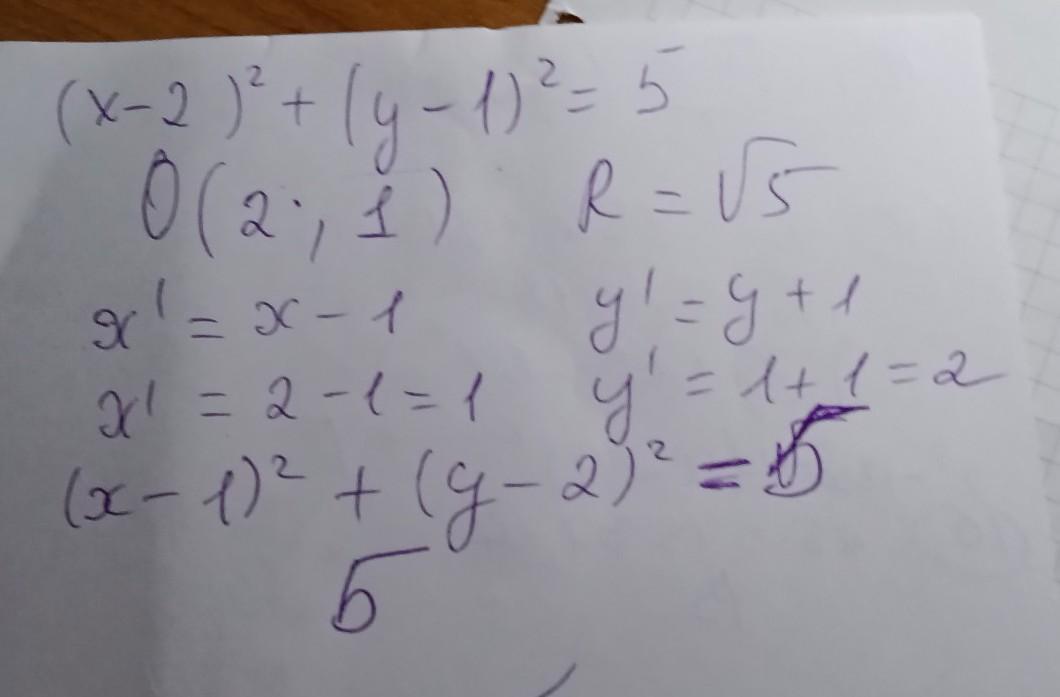 (x-2)² + (y-1)² = 5
O(2;1) R = √5
x' = x - 1 y' = y + 1
x' = 2 - 1 = 1 y' = 1 + 1 = 2
(x-1)² + (y-2)² = 5
5